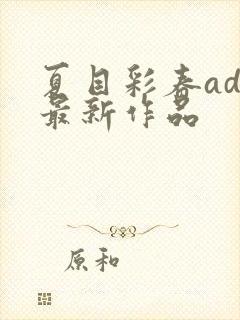 夏目彩春ad
最新作品
原和